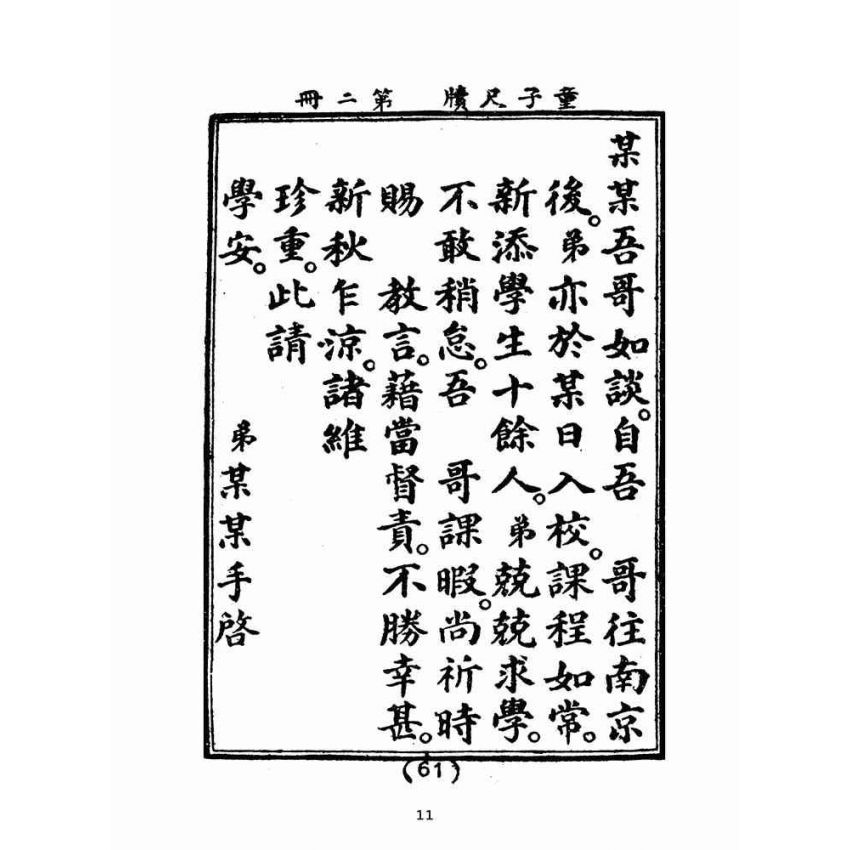 童子尺牘 第二冊
某某吾哥如談。自吾 哥往南京
後。弟亦於某日入校。課程如常。
新添學生十餘人。弟兢兢求學。
不敢稍怠。吾 哥課暇。尚祈時
賜 教言。藉當督責。不勝幸甚。
新秋乍涼。諸維
珍重。此請
學安。
弟某某手啓
(61)
11